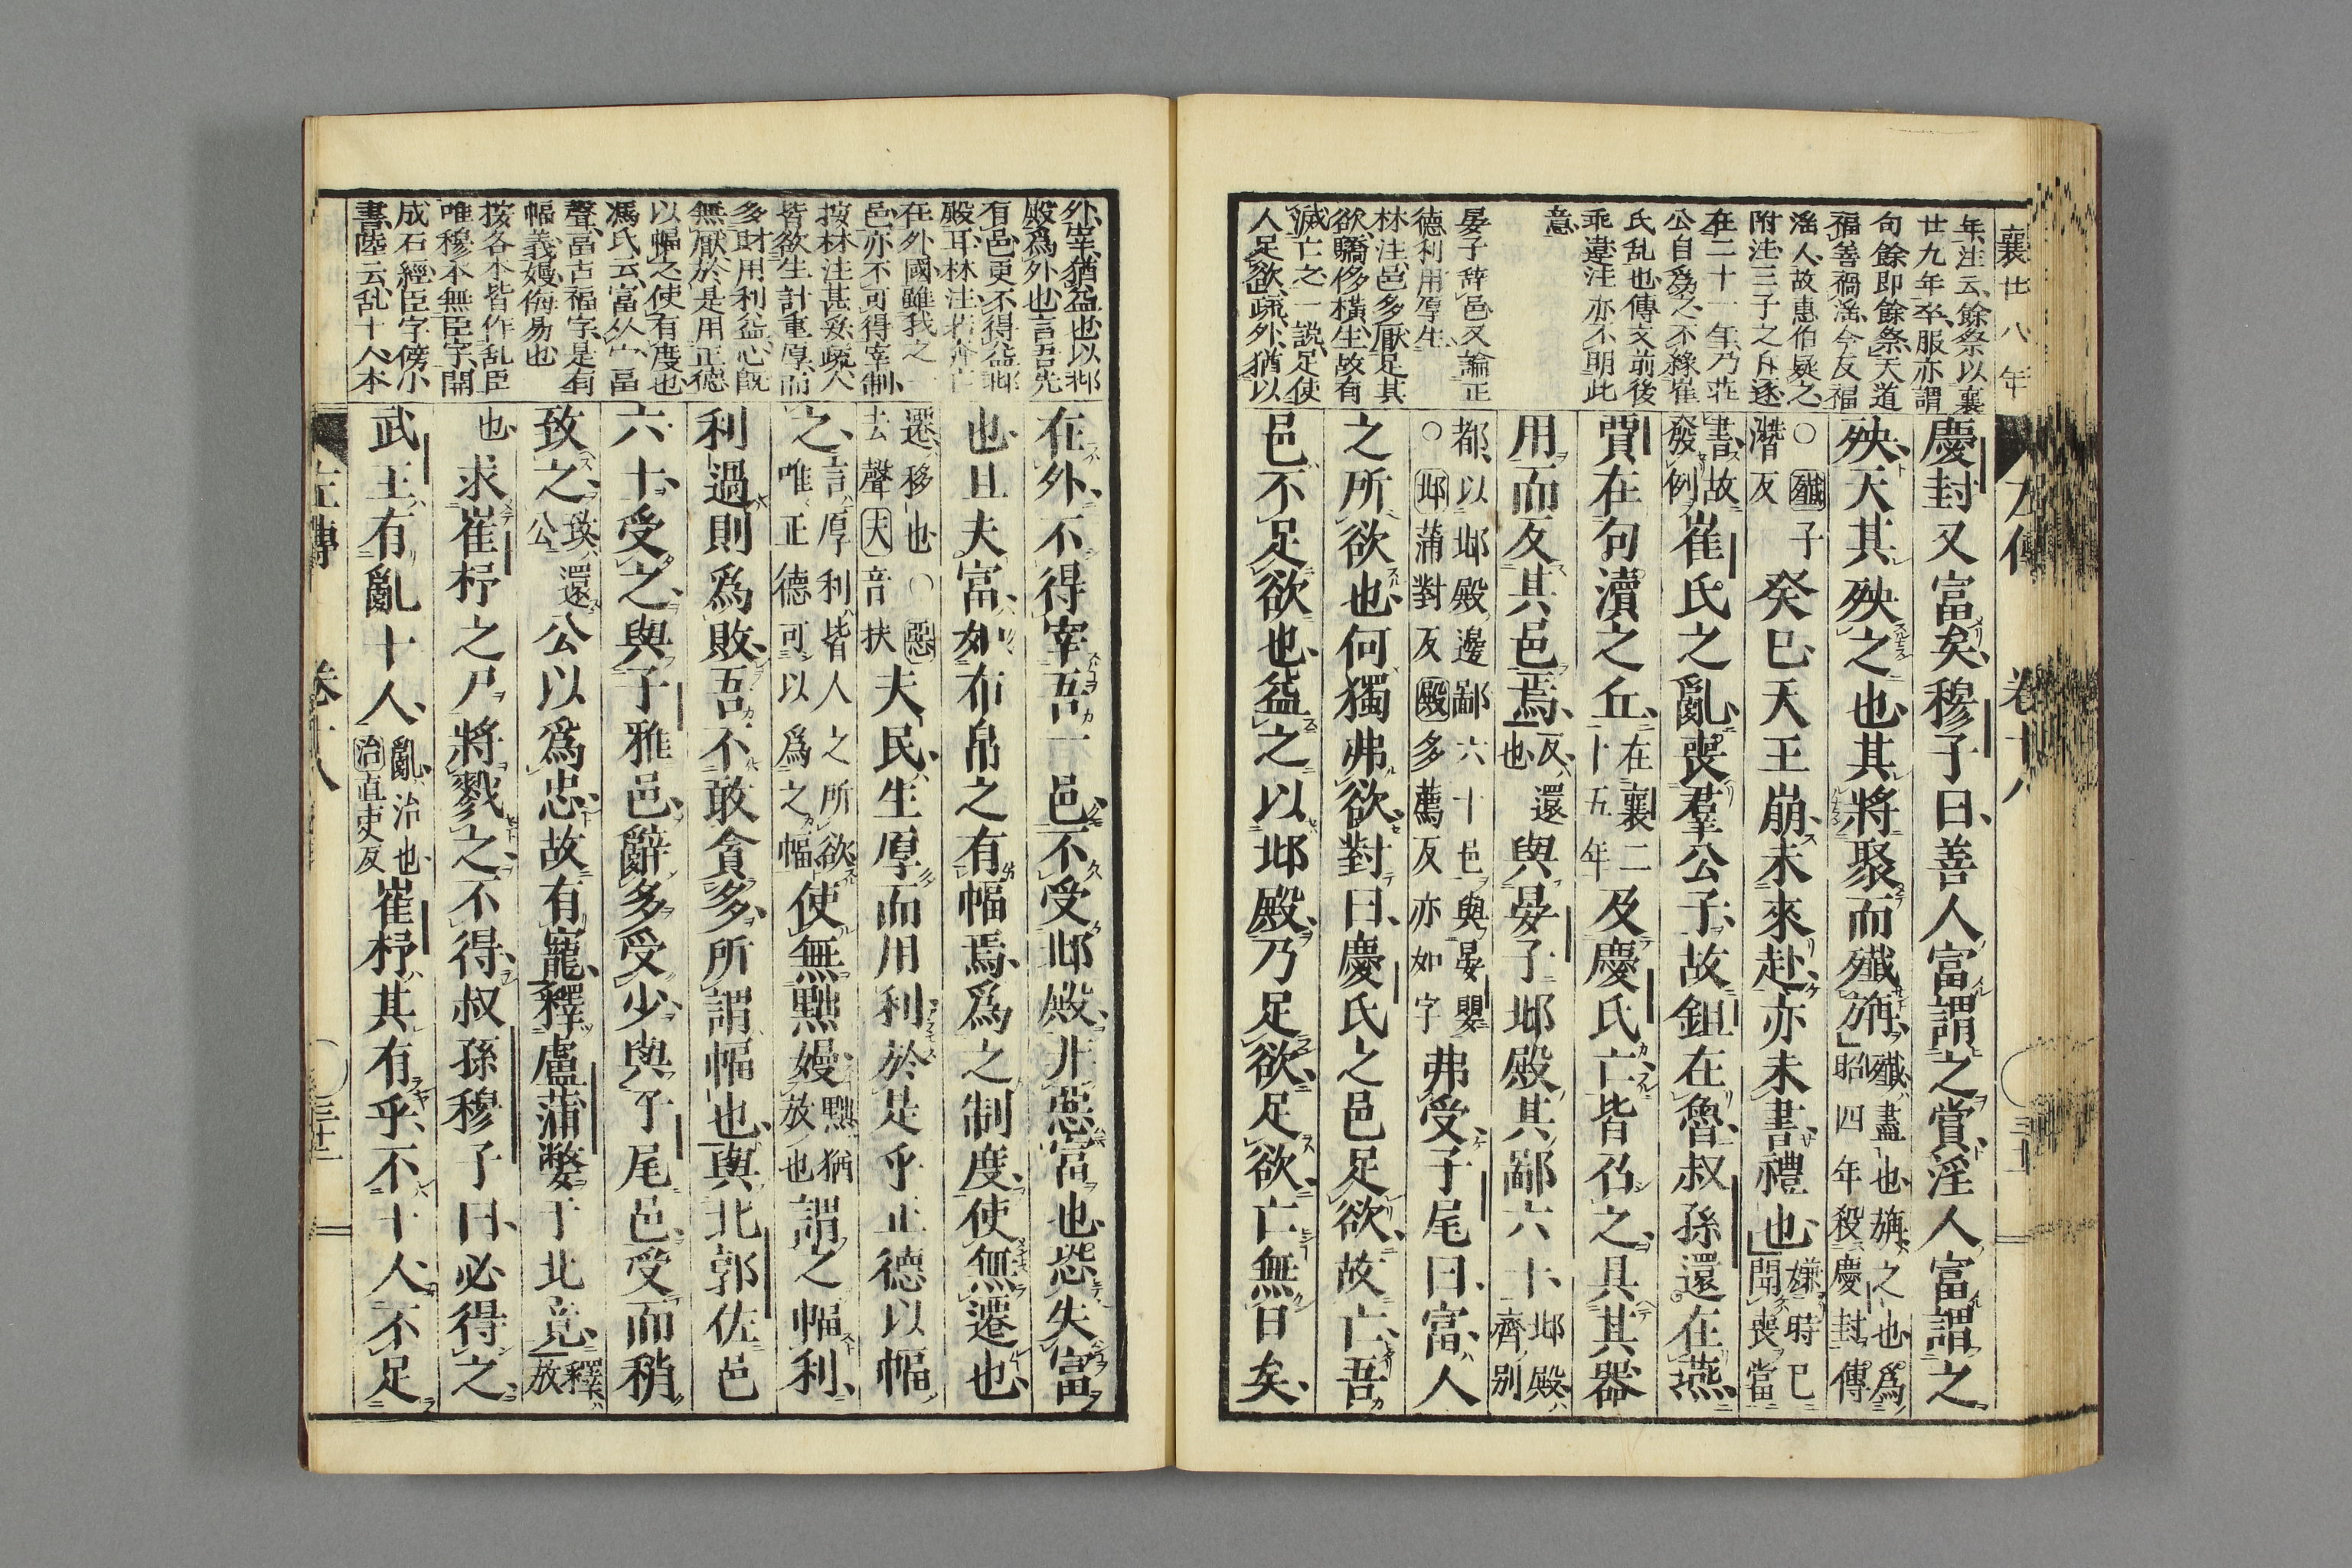 襄廿八年
年注云餘祭以襄
廿九年卒服亦謂
句餘即餘祭天道
福善禍淫今反福
淫人故惠伯疑之
附注三子之斥逐
在二十一年乃莊
公自爲之不緣崔
氏乱也傳文前後
乖違注亦不明此
意
晏子辞邑又論正
德利用厚生
林注邑多厭足其
欲驕侈橫生故有
滅亡之一説足使
人足欲疏外猶以
左傳 卷十八
慶封又富矣穆子曰善人富謂之賞淫人富謂之
殃天其殃之也其將聚而殲旃殲盡也旃之也爲昭四年殺慶封傳
○殲子潛反癸巳天王崩未來赴亦未書禮也嫌時已聞喪當
書故發例崔氏之亂喪羣公子故鉏在魯叔孫還在燕
賈在句瀆之丘在襄二十五年及慶氏亡皆召之具其器
用而反其邑焉反還也與晏子邶殿其鄙六十邶殿齊別
都以邶殿邊鄙六十邑與晏嬰○邶蒲對反殿多薦反亦如字弗受子尾曰富人
之所欲也何獨弗欲對曰慶氏之邑足欲故亡吾
邑不足欲也益之以邶殿乃足欲足欲亡無日矣
外宰猶益也以邶
殿爲外也言吾先
有邑更不得益邶
殿耳林注
在外國雖我之一
邑亦不可得宰制
按林注甚妥疏人
皆欲生計重厚而
多財用利益心既
無厭於是用正德
以幅之使有度也
馮氏云富从宀畐
聲畐古福字是有
幅義嫚侮易也
按各本皆作乱臣
唯穆本無臣字開
成石經臣字傍小
書陸云乱十人本
在外不得宰吾一邑不受邶殿非惡富也恐失富
也且夫富如布帛之有幅焉爲之制度使無遷也
遷移也○惡去聲夫音扶夫民生厚而用利於是乎正德以幅
之言厚利皆人之所欲唯正德可以爲之幅使無黜嫚黜猶放也謂之幅利
利過則爲敗吾不敢貪多所謂幅也與北郭佐邑
六十受之與子雅邑辭多受少與子尾邑受而稍
致之致還公公以爲忠故有寵釋盧蒲嫳于北竟釋放
也求崔杼之尸將戮之不得叔孫穆子曰必得之
武王有亂十人亂治也治直吏反崔杼其有乎不十人不足
左傳 卷十八